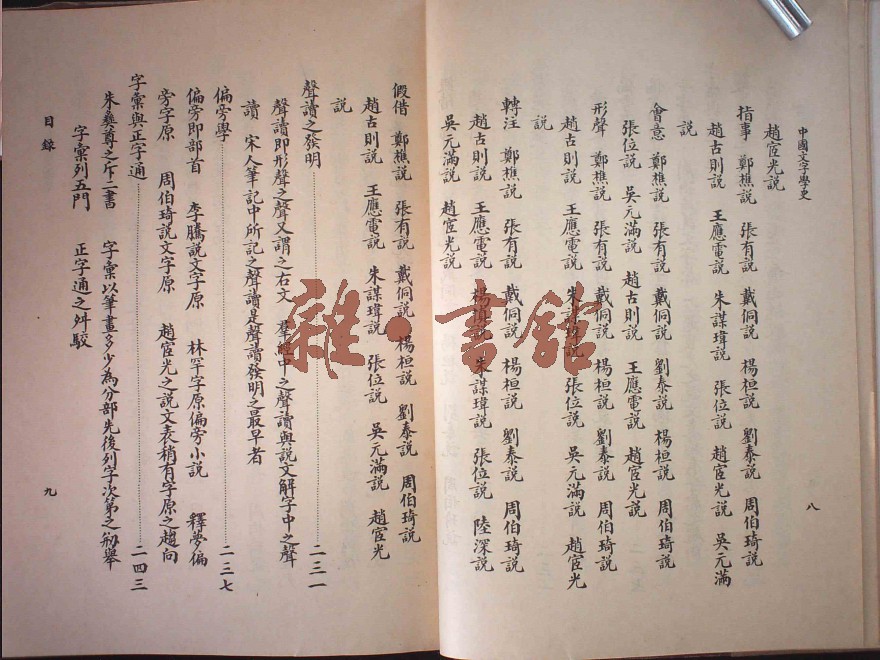 中國文字學史
八
趙宧光説
指事 鄭樵説 張有説 戴侗説 楊桓説 劉泰説 周伯琦説
趙古則説 王應電説 朱謀㙔説 張位説 趙宧光説 吳元滿
説
會意 鄭樵説 張有説 戴侗説 劉泰説 楊桓説 周伯琦説
張位説 吳元滿説 趙古則説 王應電説 趙宧光説
形聲 鄭樵説 張有説 戴侗説 楊桓説 劉泰説 周伯琦説
趙古則説 王應電説 朱謀㙔説 張位説 吳元滿説 趙宧光
説
轉注 鄭樵説 張有説 戴侗説 楊桓説 劉泰説 周伯琦説
趙古則説 王應電説 楊慎説 朱謀㙔説 張位説 陸深説
吳元滿説 趙宧光説
假借 鄭樵説 張有説 戴侗説 楊桓説 劉泰説 周伯琦説
趙古則説 王應電説 朱謀㙔説 張位説 吳元滿説 趙宧光
説
聲讀之發明……二三一
聲讀即形聲之聲又謂之右文 羣經中之聲讀與説文解字中之聲
讀 宋人筆記中所記之聲讀是聲讀發明之最早者
偏旁學……二三七
偏旁即部首 李騰説文字原 林罕字原偏旁小説 釋夢偏
旁字原 周伯琦説文字原 趙宧光之説文表稍有字原之趨向
字彙與正字通……二四三
朱彝尊之斥二書 字彙以筆畫多少為分部先後列字次第之剏舉
字彙列五門 正字通之舛駁
目錄
九
雜·書館